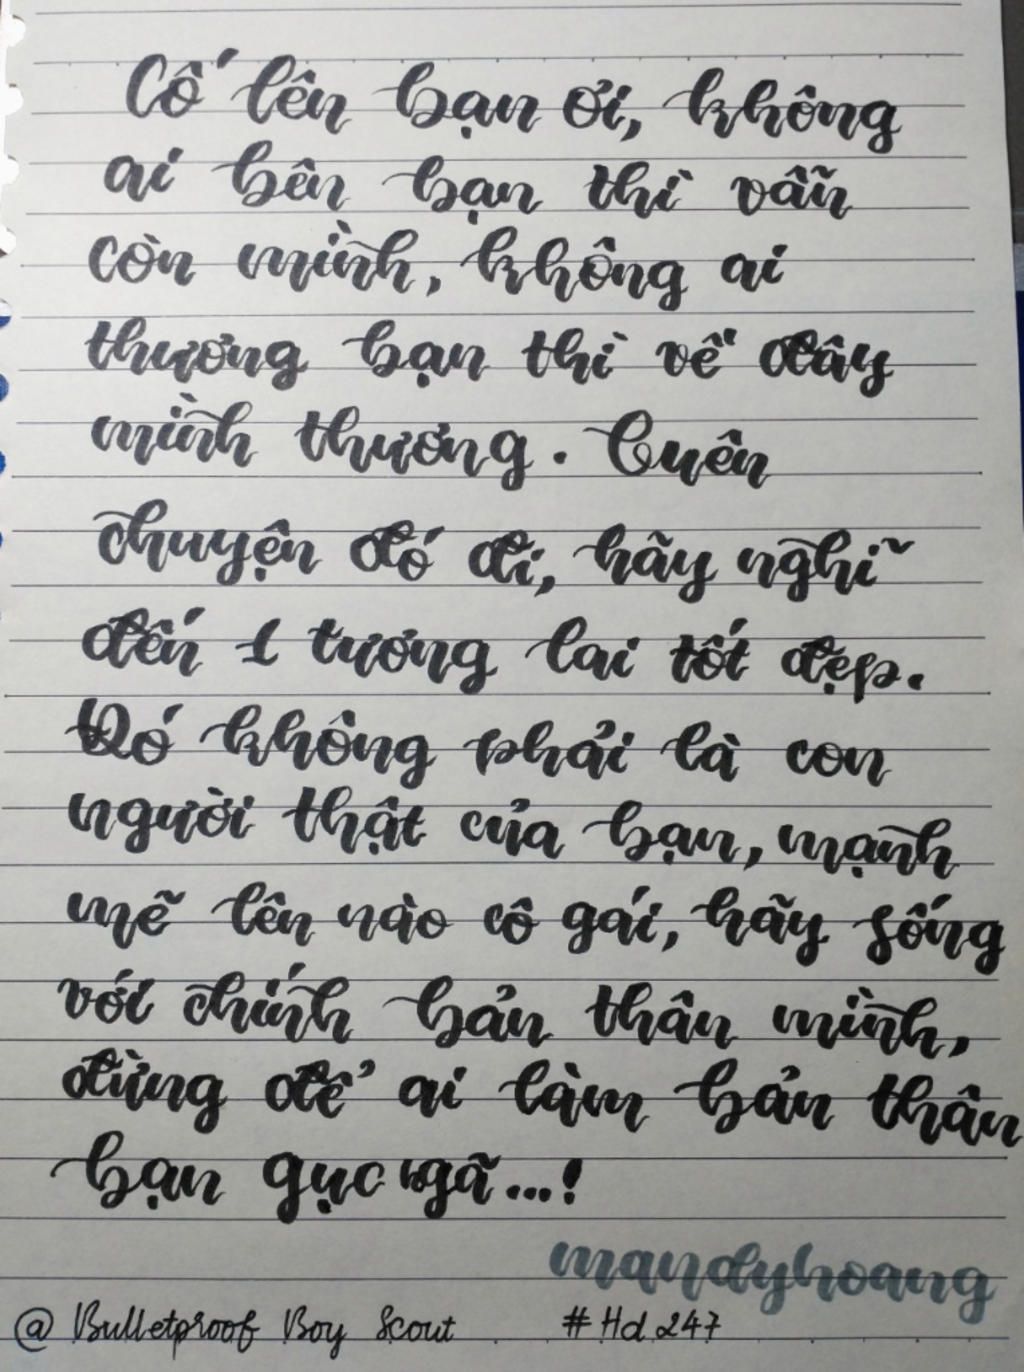 Cố lên bạn ơi, không
ai bên bạn thì vẫn
còn mình, không ai
thương bạn thì về đây
mình thương. Quên
chuyện đó đi, hãy nghĩ
đến 1 tương lai tốt đẹp.
Đó không phải là con
người thật của bạn, mạnh
mẽ lên nào cô gái, hãy sống
với chính bản thân mình,
đừng để ai làm bản thân
bạn gục ngã...!
mandyhoang
@ Bulletproof Boy Scout #Hd247